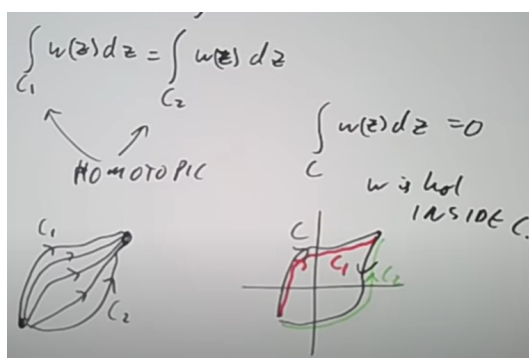 ∫_{C₁} w(z)dz = ∫_{C₂} w(z) dz
HOMOTOPIC
∫_C w(z)dz = 0
w is hol
INSIDE C.
C₁
C₂
C
C₁
C₂